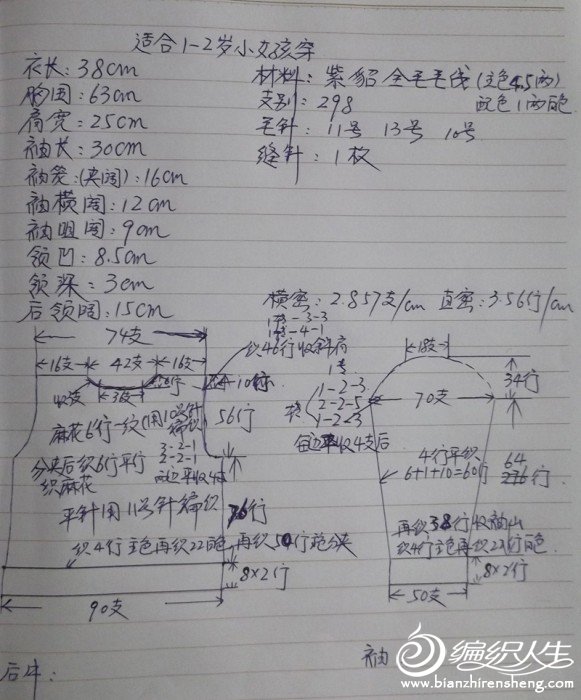 适合1-2岁小女孩穿
衣长:38cm
胸围:63cm
肩宽:25cm
袖长:30cm
袖笼:(夹阔):16cm
袖横阔:12cm
袖咀阔:9cm
领凹:8.5cm
领深:3cm
后领阔:15cm
材料:紫貂全毛毛线(主色4.5两)
配色1两
支别:298
毛针:11号 13号 10号
缝针:1枚
横密:2.857支/cm 直密:3.56行/cm
74支
16支 42支 16支
36支
织46行收斜肩
1-4-1
56行
麻花6行一纹(用10号针编织)
分夹后织6行平行
织麻花
3-2-1
2-2-1
两边平收4支
平针用11号针编织
76行
织4行主色再织22行配色,再织50行分夹
8×2行
90支
18支
34行
1-2-3
2-2-5
1-2-3
70支
每边平收4支后
4行平织
6+1+10=60行
64
行
再织38行收袖山
织4行主色再织22行配色
8×2行
50支
后片:
袖
编织人生
www.bianzhirensheng.com